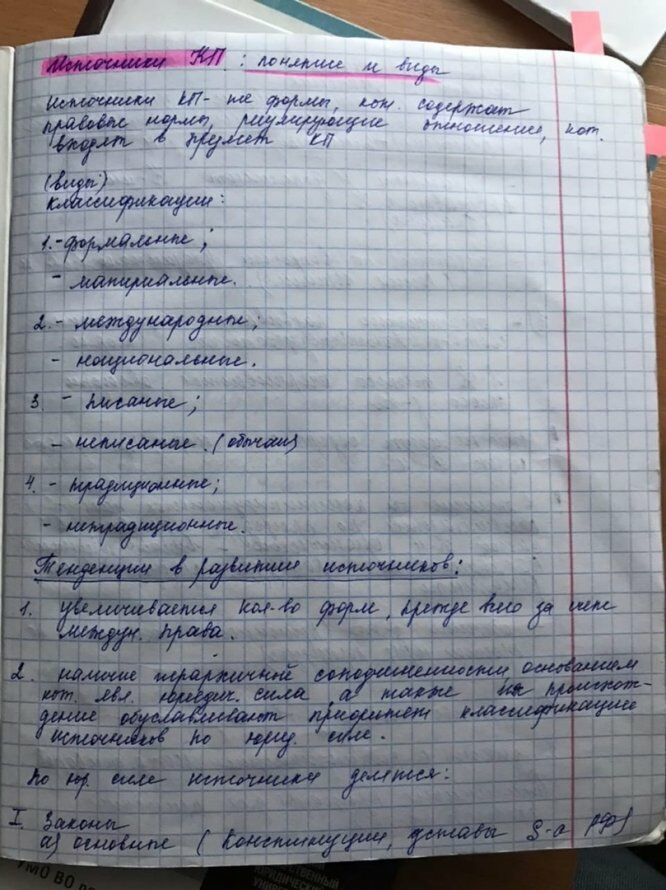 Источники КП: понятие и виды
Источники КП- те формы, кот. содержат
правовые нормы, регулирующие отношение, кот.
входят в предмет КП
(виды)
классификации:
1.- формальные;
- материальные.
2.- международные;
- национальные.
3. - писаные;
- неписаные. (обычаи)
4. - традиционные;
- нетрадиционные.
Тенденции в развитии источников:
1. увеличивается кол-во форм, прежде всего за счет
междун. права.
2. наличие иерархичной соподчиненности основанием
кот. явл. юридич. сила а также их происхож-
дение обуславливают приоритет классификацие
источников по юрид. силе.
По юр. силе источники делятся:
I. Законы
а) основные (Конституции, уставы S-а РФ)
УМО ВО
ЮРИДИЧЕСКИЙ